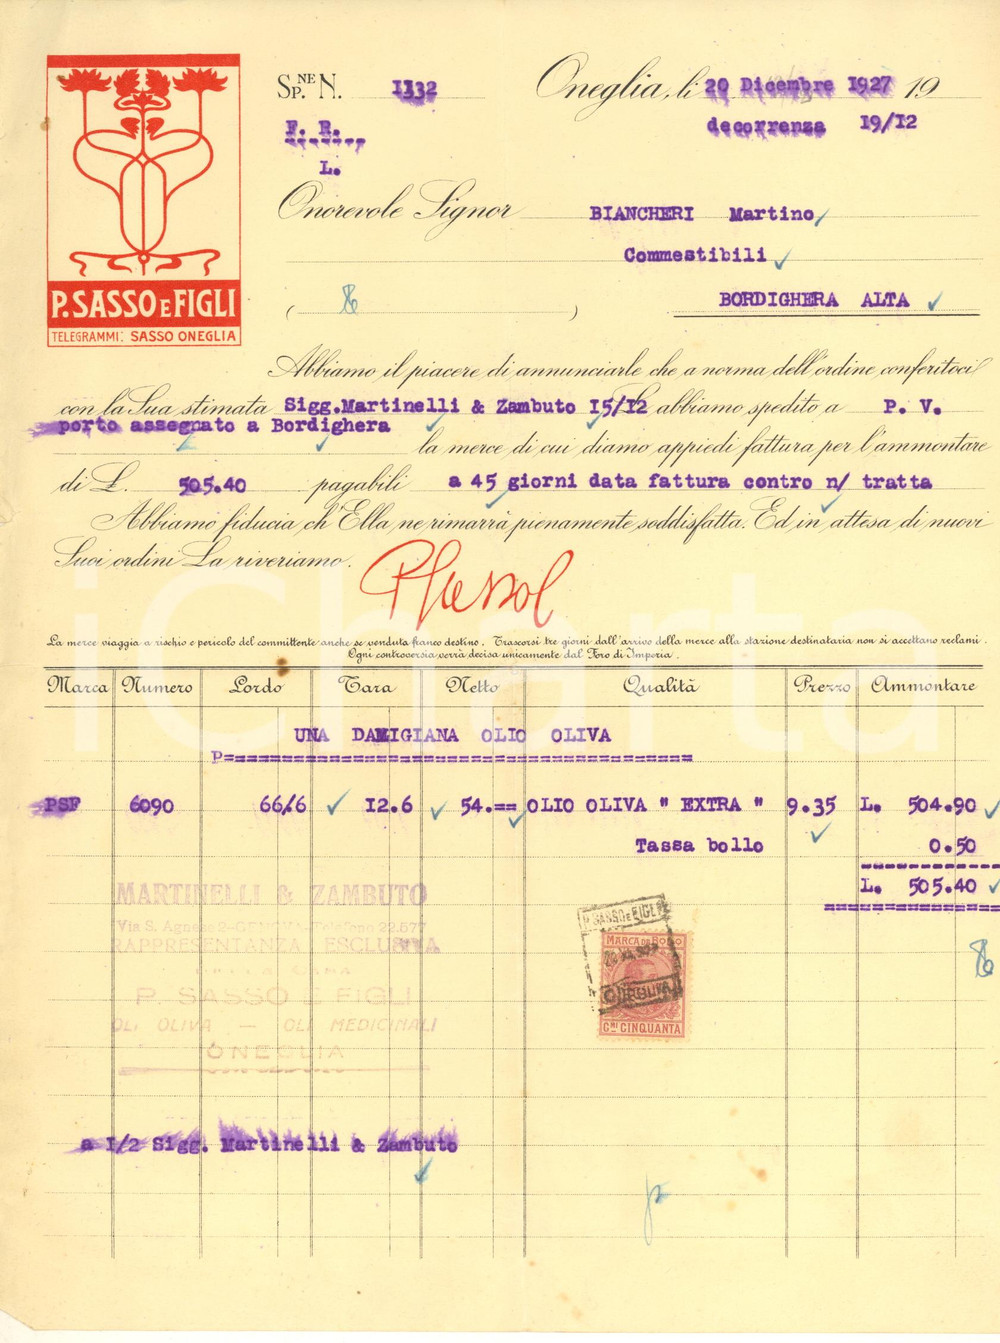 P. SASSO E FIGLI
TELEGRAMMI: SASSO ONEGLIA
SP.NE N. 1332
Oneglia, li 20 Dicembre 1927 19
decorrenza 19/12
F. R.
L.
Onorevole Signor BIANCHERI Martino,
Commestibili
BORDIGHERA ALTA
( )
Abbiamo il piacere di annunciarle che a norma dell'ordine conferitoci
con la Sua stimata Sigg.Martinelli & Zambuto 15/12 abbiamo spedito a P. V.
porto assegnato a Bordighera
la merce di cui diamo appiedi fattura per l'ammontare
di L. 505.40 pagabili a 45 giorni data fattura contro n/ tratta
Abbiamo fiducia ch'Ella ne rimarrà pienamente soddisfatta. Ed in attesa di nuovi
Suoi ordini La riveriamo.
P Sasso
La merce viaggia a rischio e pericolo del committente anche se venduta franco destino. Trascorsi tre giorni dall'arrivo della merce alla stazione destinataria non si accettano reclami.
Ogni controversia verrà decisa unicamente dal Foro di Imperia.
Marca Numero Lordo Tara Netto Qualità Prezzo Ammontare
UNA DAMIGIANA OLIO OLIVA
PSF 6090 66/6 12.6 54.== OLIO OLIVA " EXTRA " 9.35 L. 504.90
Tassa bollo 0.50
L. 505.40
MARTINELLI & ZAMBUTO
Via S. Agnese 2-GENOVA-Telefono 22.677
RAPPRESENTANZA ESCLUSIVA
DELLA CASA
P. SASSO E FIGLI
OLI OLIVA — OLI MEDICINALI
ONEGLIA
P. SASSO E FIGLI
MARCA DA BOLLO
CMI CINQUANTA
a 1/2 Sigg. Martinelli & Zambuto
iCharta